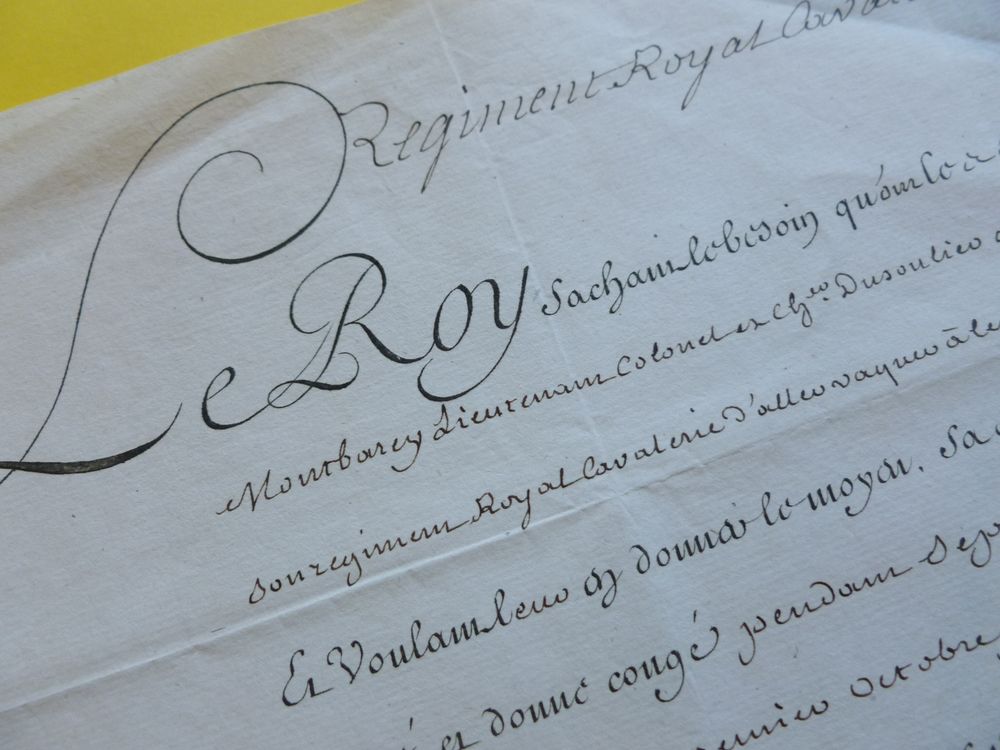 Regiment Royal Cava
Le Roy Sachant le besoin qu'ont le
Montbarey Lieutenant Colonel et Ch.er Dusoulier
son regiment Royal Cavalerie d'aller vaquer à le
Et Voulant leur donner le moyen. Sa
et donne congé pendant
dernier octobre